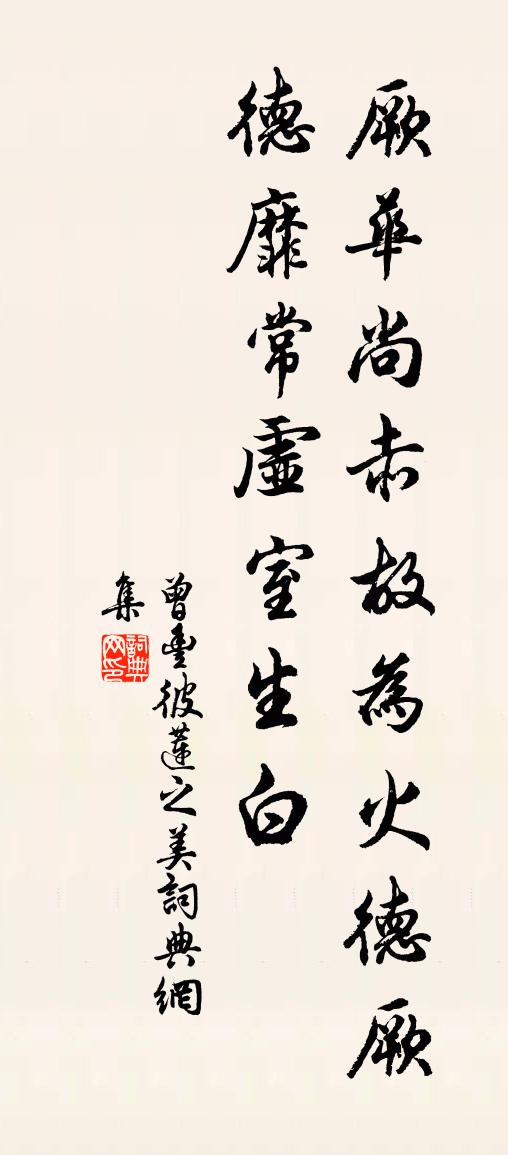 厥華尚赤故為火德厥
德靡常虛室生白
曾豐彼蓮之美詞典網
集
詞典
网印